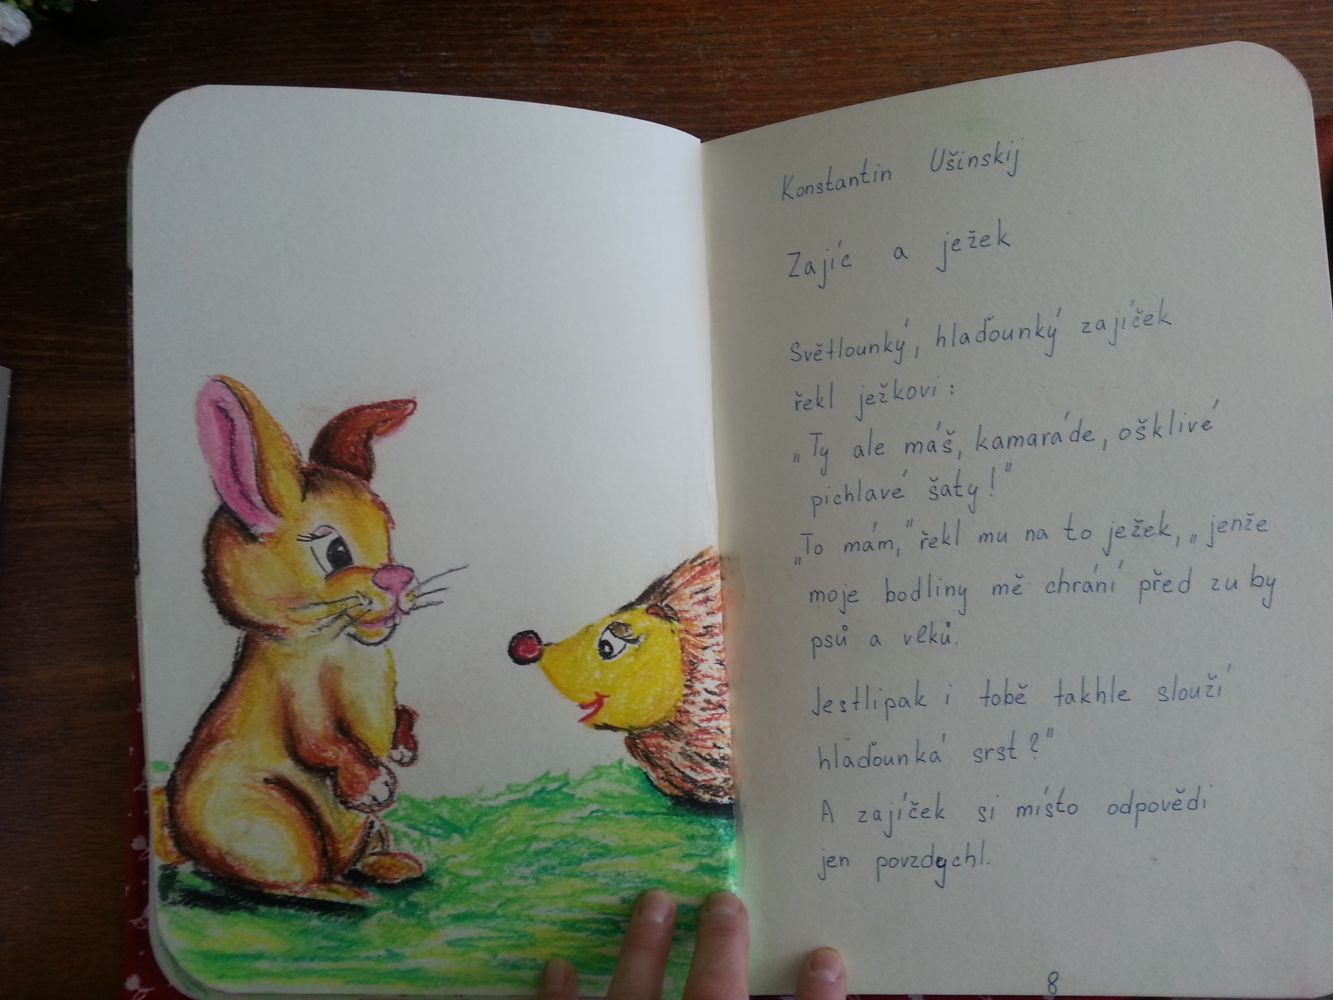 Konstantin Ušinskij
Zajíc a ježek
Světlounký, hlaďounký zajíček
řekl ježkovi:
„Ty ale máš, kamaráde, ošklivé
pichlavé šaty!"
„To mám," řekl mu na to ježek, „jenže
moje bodliny mě chrání před zuby
psů a vlků.
Jestlipak i tobě takhle slouží
hlaďounká srst?"
A zajíček si místo odpovědi
jen povzdychl.
8